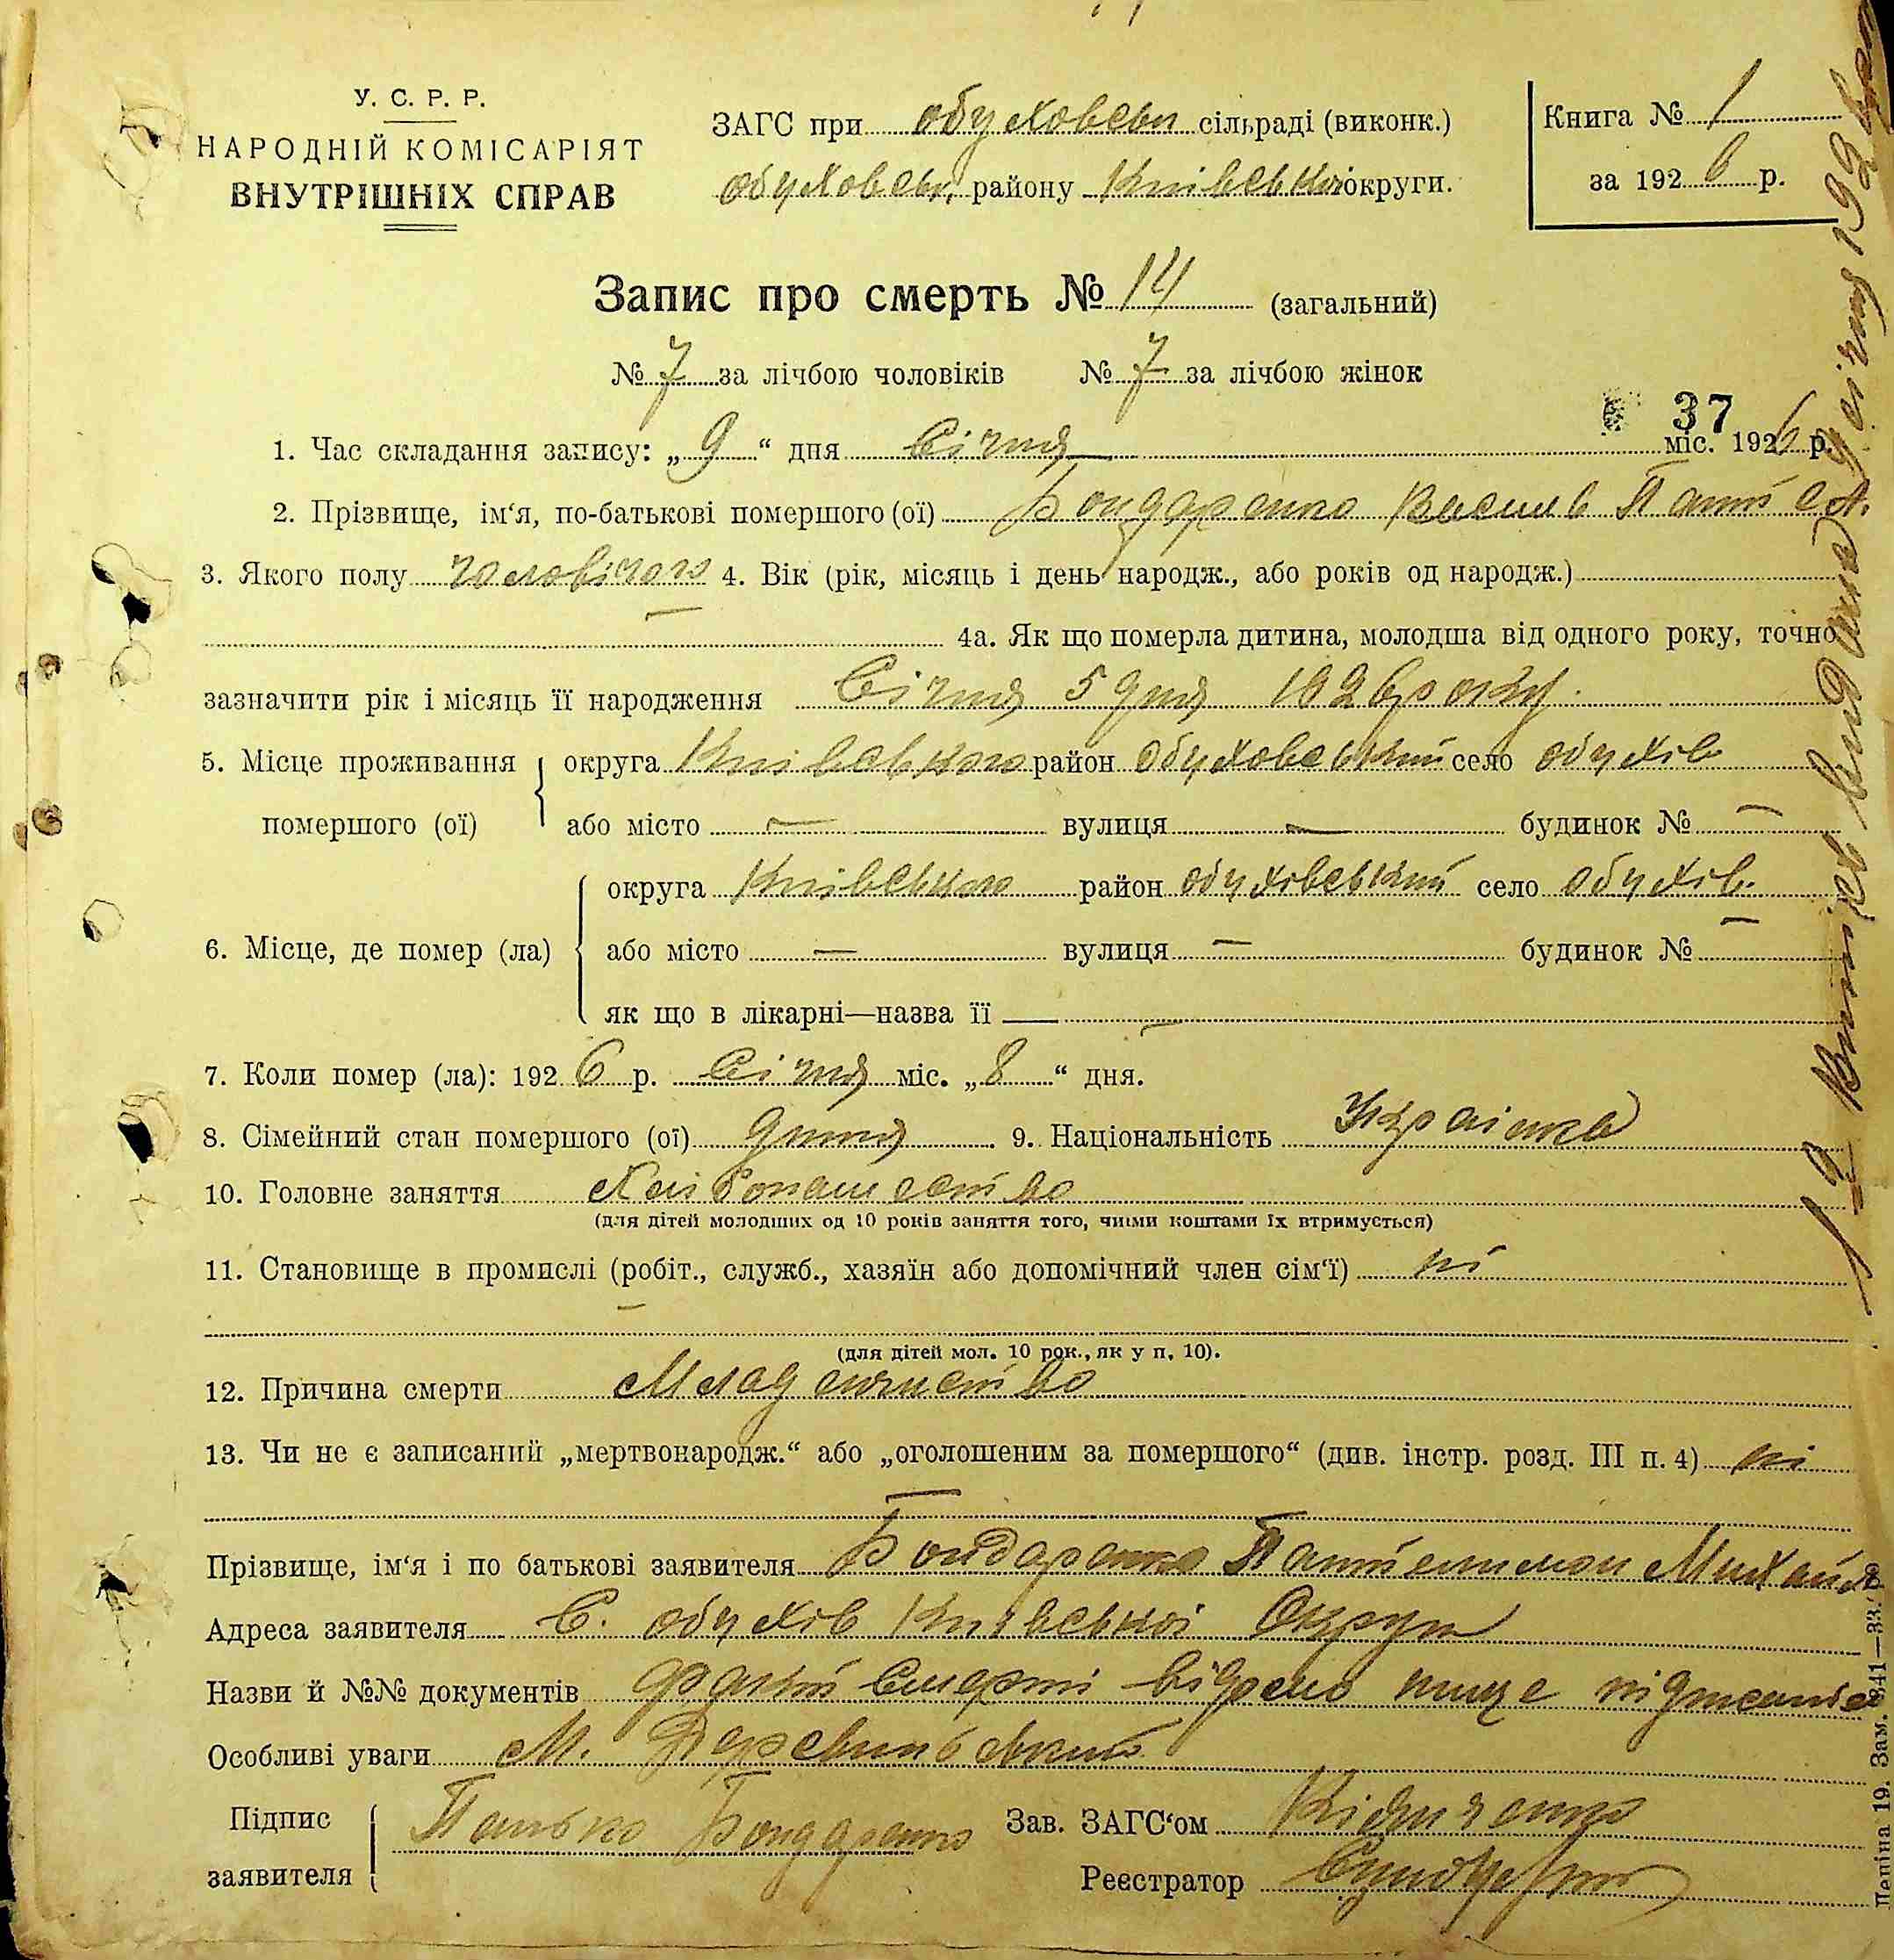 У. С. Р. Р.
НАРОДНІЙ КОМІСАРІЯТ
ВНУТРІШНІХ СПРАВ
ЗАГС при обуховськ сільраді (виконк.)
обуховськ, району Київської округи.
Книга № 1
за 1926 р.
Запис про смерть № 14 (загальний)
№ 7 за лічбою чоловіків № 7 за лічбою жінок
37
1. Час складання запису: „9“ дня Січня міс. 1926 р.
2. Прізвище, ім‘я, по-батькові помершого (ої) Бондаренко Василь
3. Якого полу чоловічого 4. Вік (рік, місяць і день народж., або років од народж.)
4а. Як що померла дитина, молодша від одного року, точно
зазначити рік і місяць її народження Січня 5 дня 1926 року.
5. Місце проживання округа Київського район обуховський село обухів
помершого (ої) або місто — вулиця — будинок № —
округа Київського район обухівський село обухів.
6. Місце, де помер (ла) або місто — вулиця — будинок № —
як що в лікарні—назва її —
7. Коли помер (ла): 1926 р. Січня міс. „8“ дня.
8. Сімейний стан помершого (ої) дитя 9. Національність Україна
10. Головне заняття Хліборобство
(для дітей молодших од 10 років заняття того, чиїми коштами їх втримується)
11. Становище в промислі (робіт., служб., хазяїн або допомічний член сім‘ї) ні
(для дітей мол. 10 рок., як у п. 10).
12. Причина смерти Младенчество
13. Чи не є записаний „мертвонародж.“ або „оголошеним за помершого“ (див. інстр. розд. III п. 4) ні
Прізвище, ім‘я і по батькові заявителя Бондаренко Пантелимон Михайл
Адреса заявителя С. обухів Київської Округи
Назви й №№ документів факт Смерті
Особливі уваги М.
Підпис заявителя Панько Бондаренко Зав. ЗАГС‘ом
Реєстратор
Витяг видано 9 січня 192
Зам. 841—33.